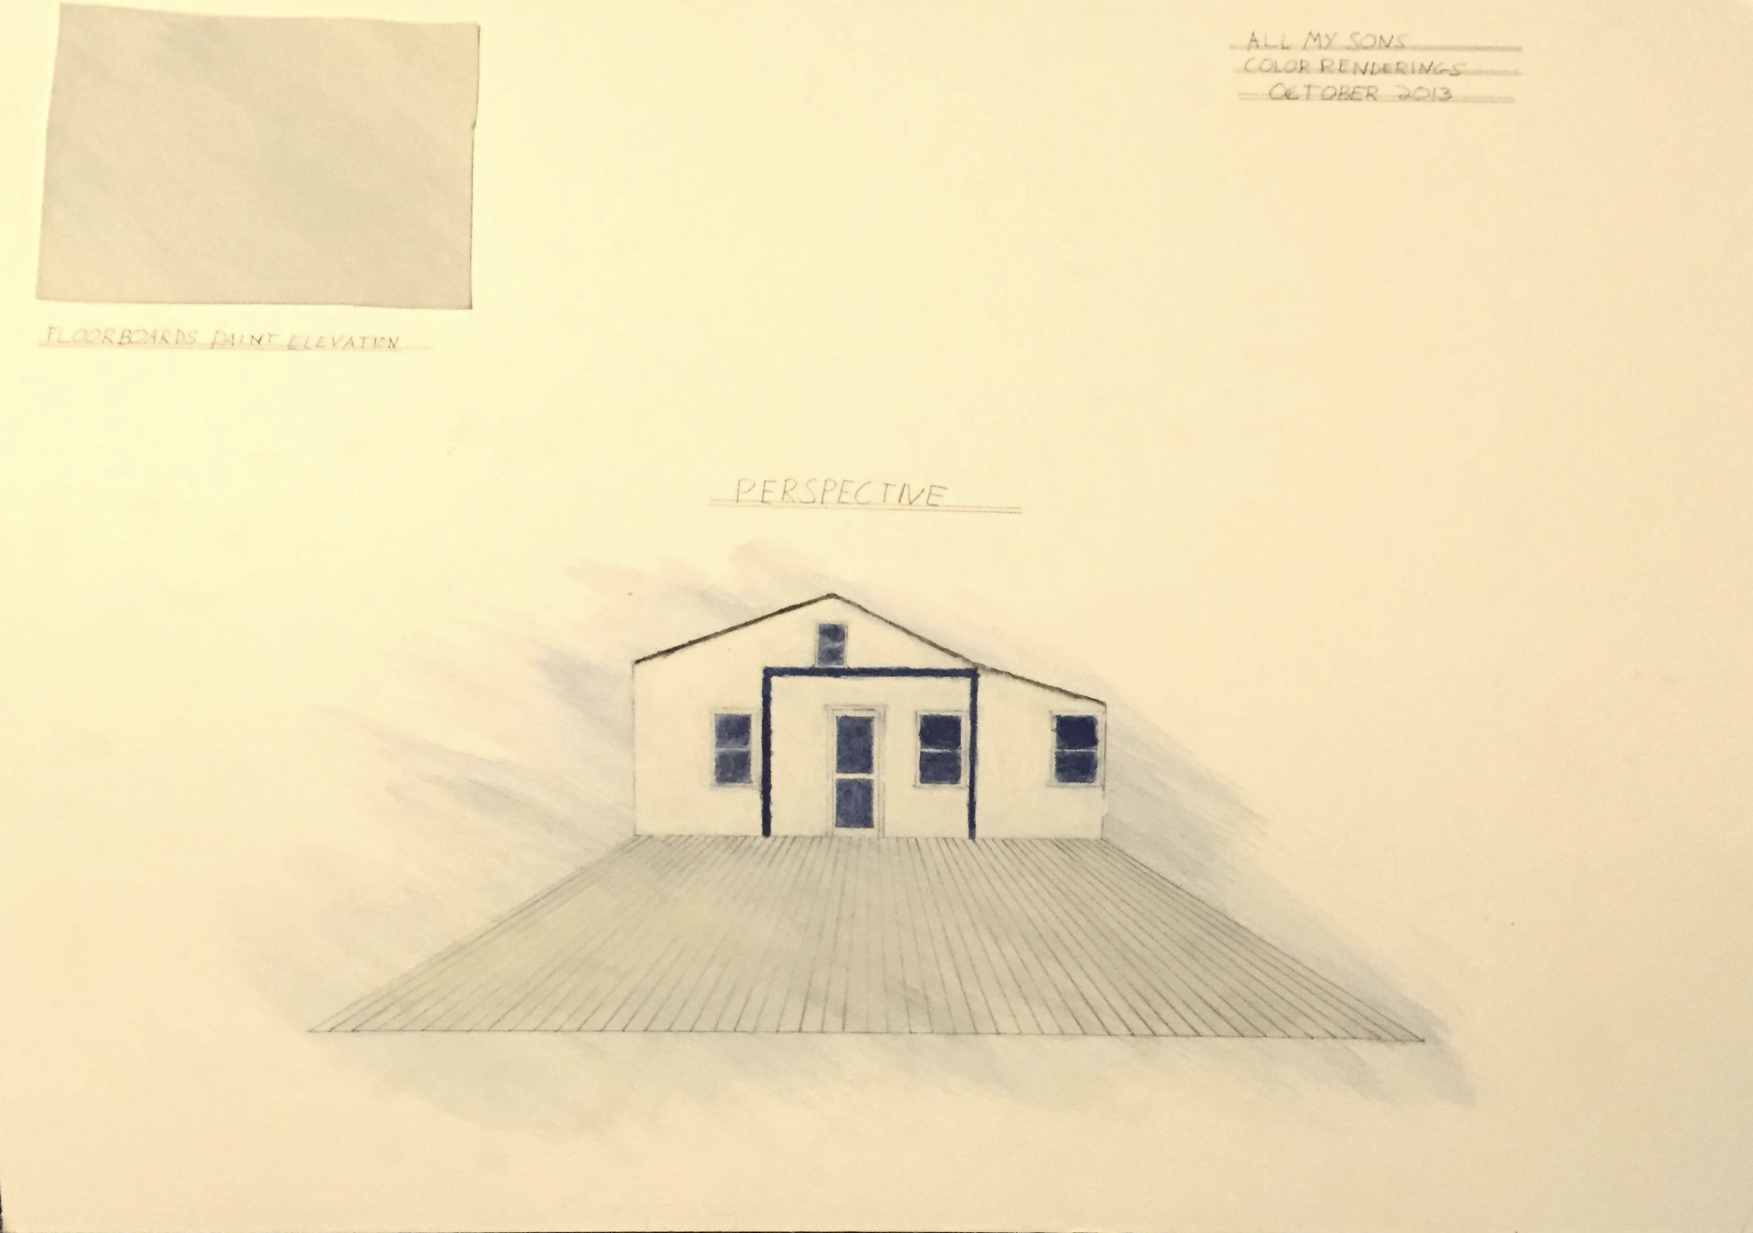 ALL MY SONS
COLOR RENDERINGS
OCTOBER 2013
FLOORBOARDS PAINT ELEVATION
PERSPECTIVE